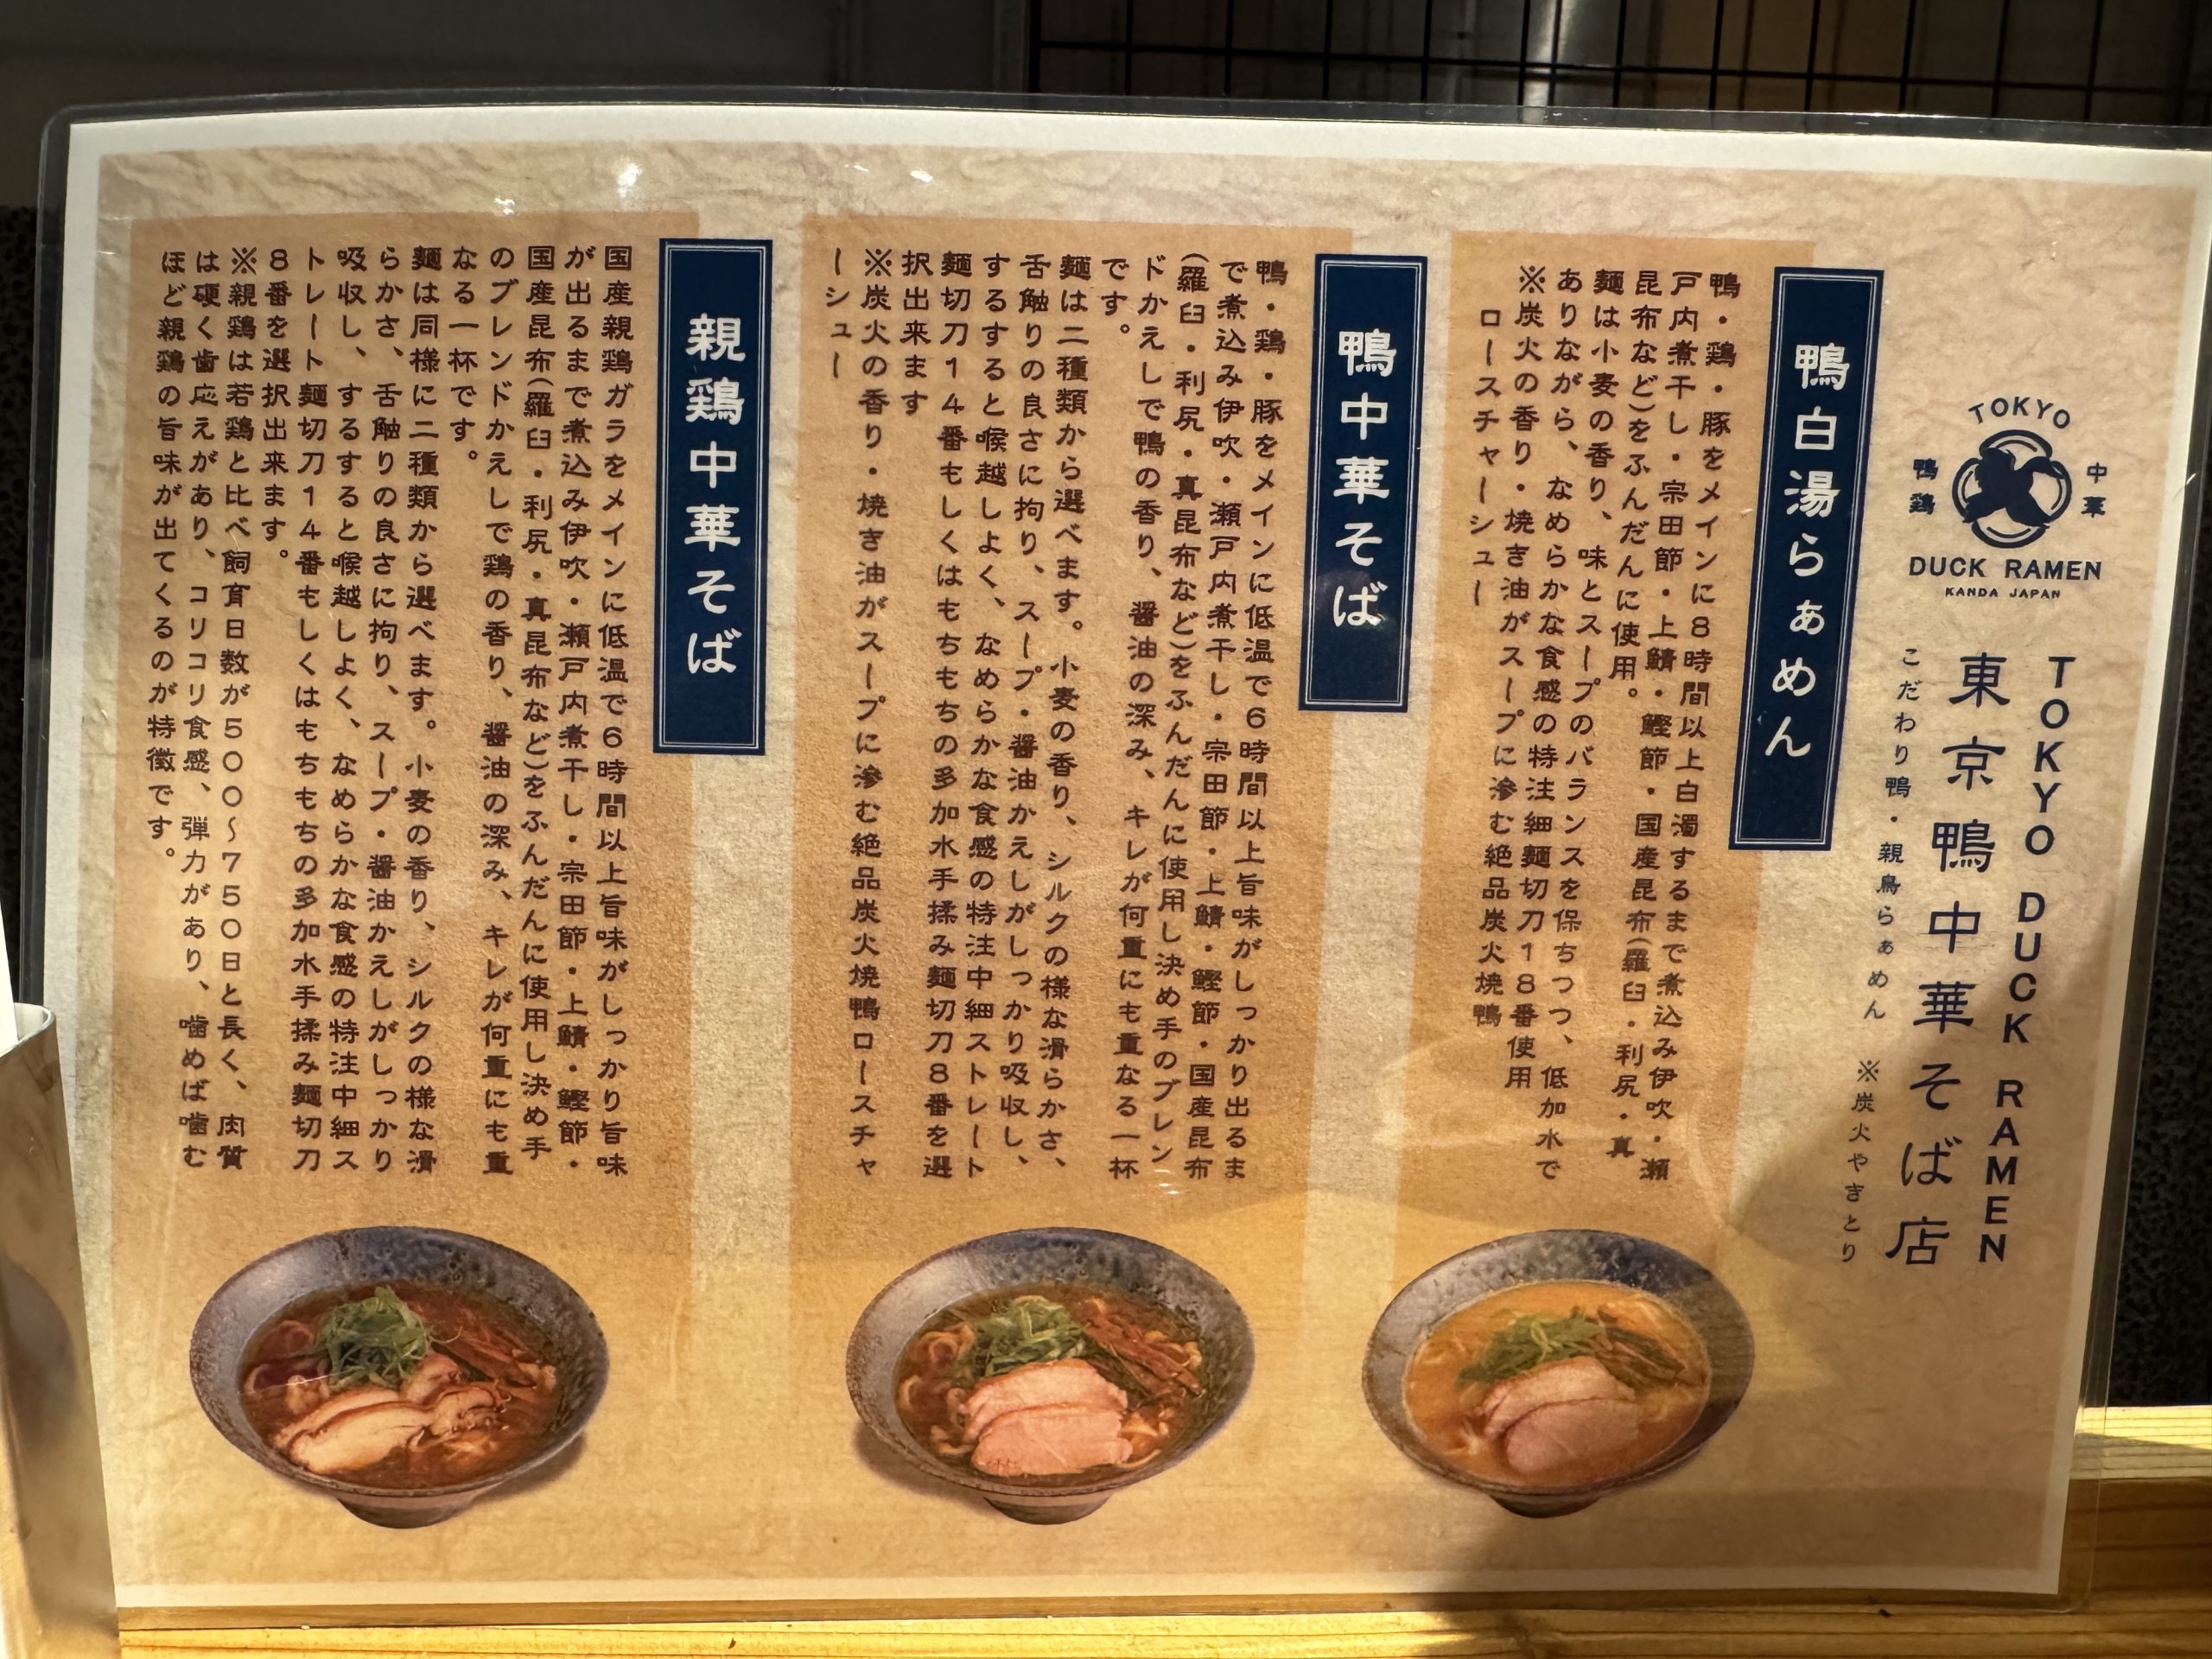 TOKYO
鴨鶏
中華
DUCK RAMEN
KANDA JAPAN
TOKYO DUCK RAMEN
東京鴨中華そば店
こだわり鴨・親鳥らぁめん ※炭火やきとり
鴨白湯らぁめん
鴨・鶏・豚をメインに8時間以上白濁するまで煮込み伊吹・瀬
戸内煮干し・宗田節・上鯖・鰹節・国産昆布(羅臼・利尻・真
昆布など)をふんだんに使用。
麺は小麦の香り、味とスープのバランスを保ちつつ、低加水で
ありながら、なめらかな食感の特注細麺切刀18番使用
※炭火の香り・焼き油がスープに滲む絶品炭火焼鴨
ロースチャーシュー
鴨中華そば
鴨・鶏・豚をメインに低温で6時間以上旨味がしっかり出るま
で煮込み伊吹・瀬戸内煮干し・宗田節・上鯖・鰹節・国産昆布
(羅臼・利尻・真昆布など)をふんだんに使用し決め手のブレン
ドかえしで鴨の香り、醤油の深み、キレが何重にも重なる一杯
です。
麺は二種類から選べます。小麦の香り、シルクの様な滑らかさ、
舌触りの良さに拘り、スープ・醤油かえしがしっかり吸収し、
するすると喉越しよく、なめらかな食感の特注中細ストレート
麺切刀14番もしくはもちもちの多加水手揉み麺切刀8番を選
択出来ます
※炭火の香り・焼き油がスープに滲む絶品炭火焼鴨ロースチャ
ーシュー
親鶏中華そば
国産親鶏ガラをメインに低温で6時間以上旨味がしっかり旨味
が出るまで煮込み伊吹・瀬戸内煮干し・宗田節・上鯖・鰹節・
国産昆布(羅臼・利尻・真昆布など)をふんだんに使用し決め手
のブレンドかえしで鶏の香り、醤油の深み、キレが何重にも重
なる一杯です。
麺は同様に二種類から選べます。小麦の香り、シルクの様な滑
らかさ、舌触りの良さに拘り、スープ・醤油かえしがしっかり
吸収し、するすると喉越しよく、なめらかな食感の特注中細ス
トレート麺切刀14番もしくはもちもちの多加水手揉み麺切刀
8番を選択出来ます。
※親鶏は若鶏と比べ飼育日数が500〜750日と長く、肉質
は硬く歯応えがあり、コリコリ食感、弾力があり、噛めば噛む
ほど親鶏の旨味が出てくるのが特徴です。